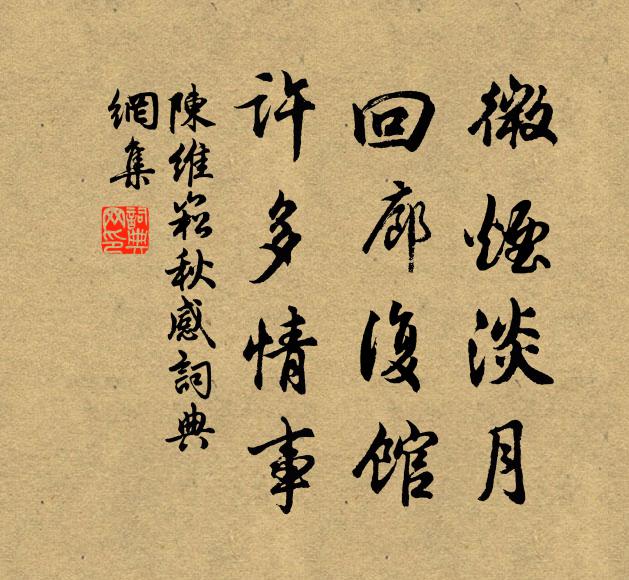 微煙淡月
回廊復館
許多情事
陳維崧秋感詞典
網集
詞典
网印